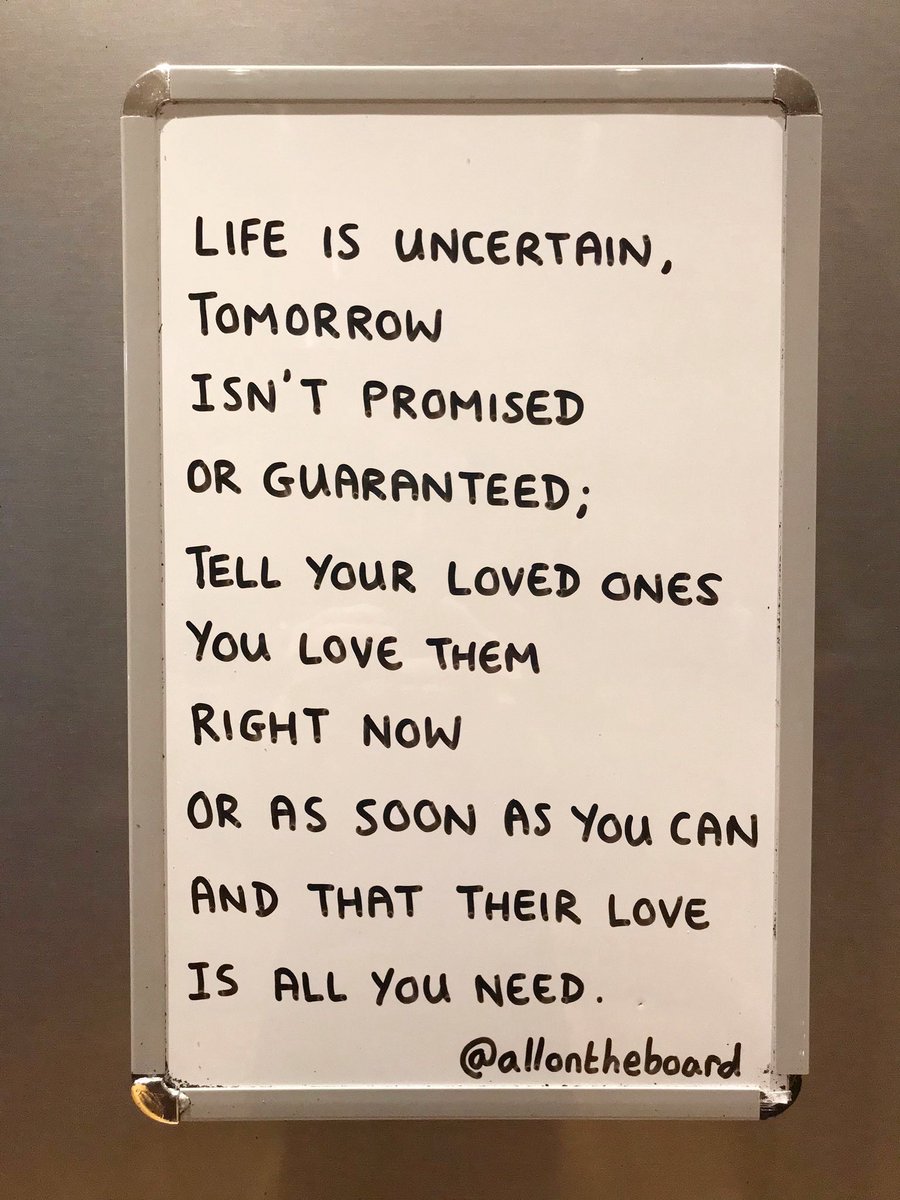 LIFE IS UNCERTAIN,
TOMORROW
ISN'T PROMISED
OR GUARANTEED;
TELL YOUR LOVED ONES
YOU LOVE THEM
RIGHT NOW
OR AS SOON AS YOU CAN
AND THAT THEIR LOVE
IS ALL YOU NEED.
@allontheboard